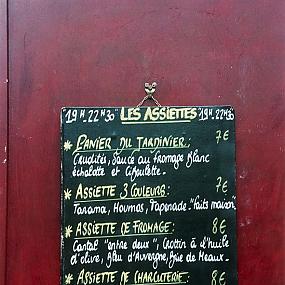 19H.22H30 LES ASSIETTES 19H.22H30
* PANIER DU JARDINIER: 7€
Crudités, Sauce au fromage blanc
échalotte et Ciboulette.
* ASSIETTE 3 COULEURS: 7€
Tarama, Houmos, Tapenade "faits maison"
* ASSIETTE DE FROMAGE: 8€
Cantal "entre deux", Crottin à l'huile
d'olive, Bleu d'Auvergne, Brie de Meaux.
* ASSIETTE DE CHARCUTERIE: 8€